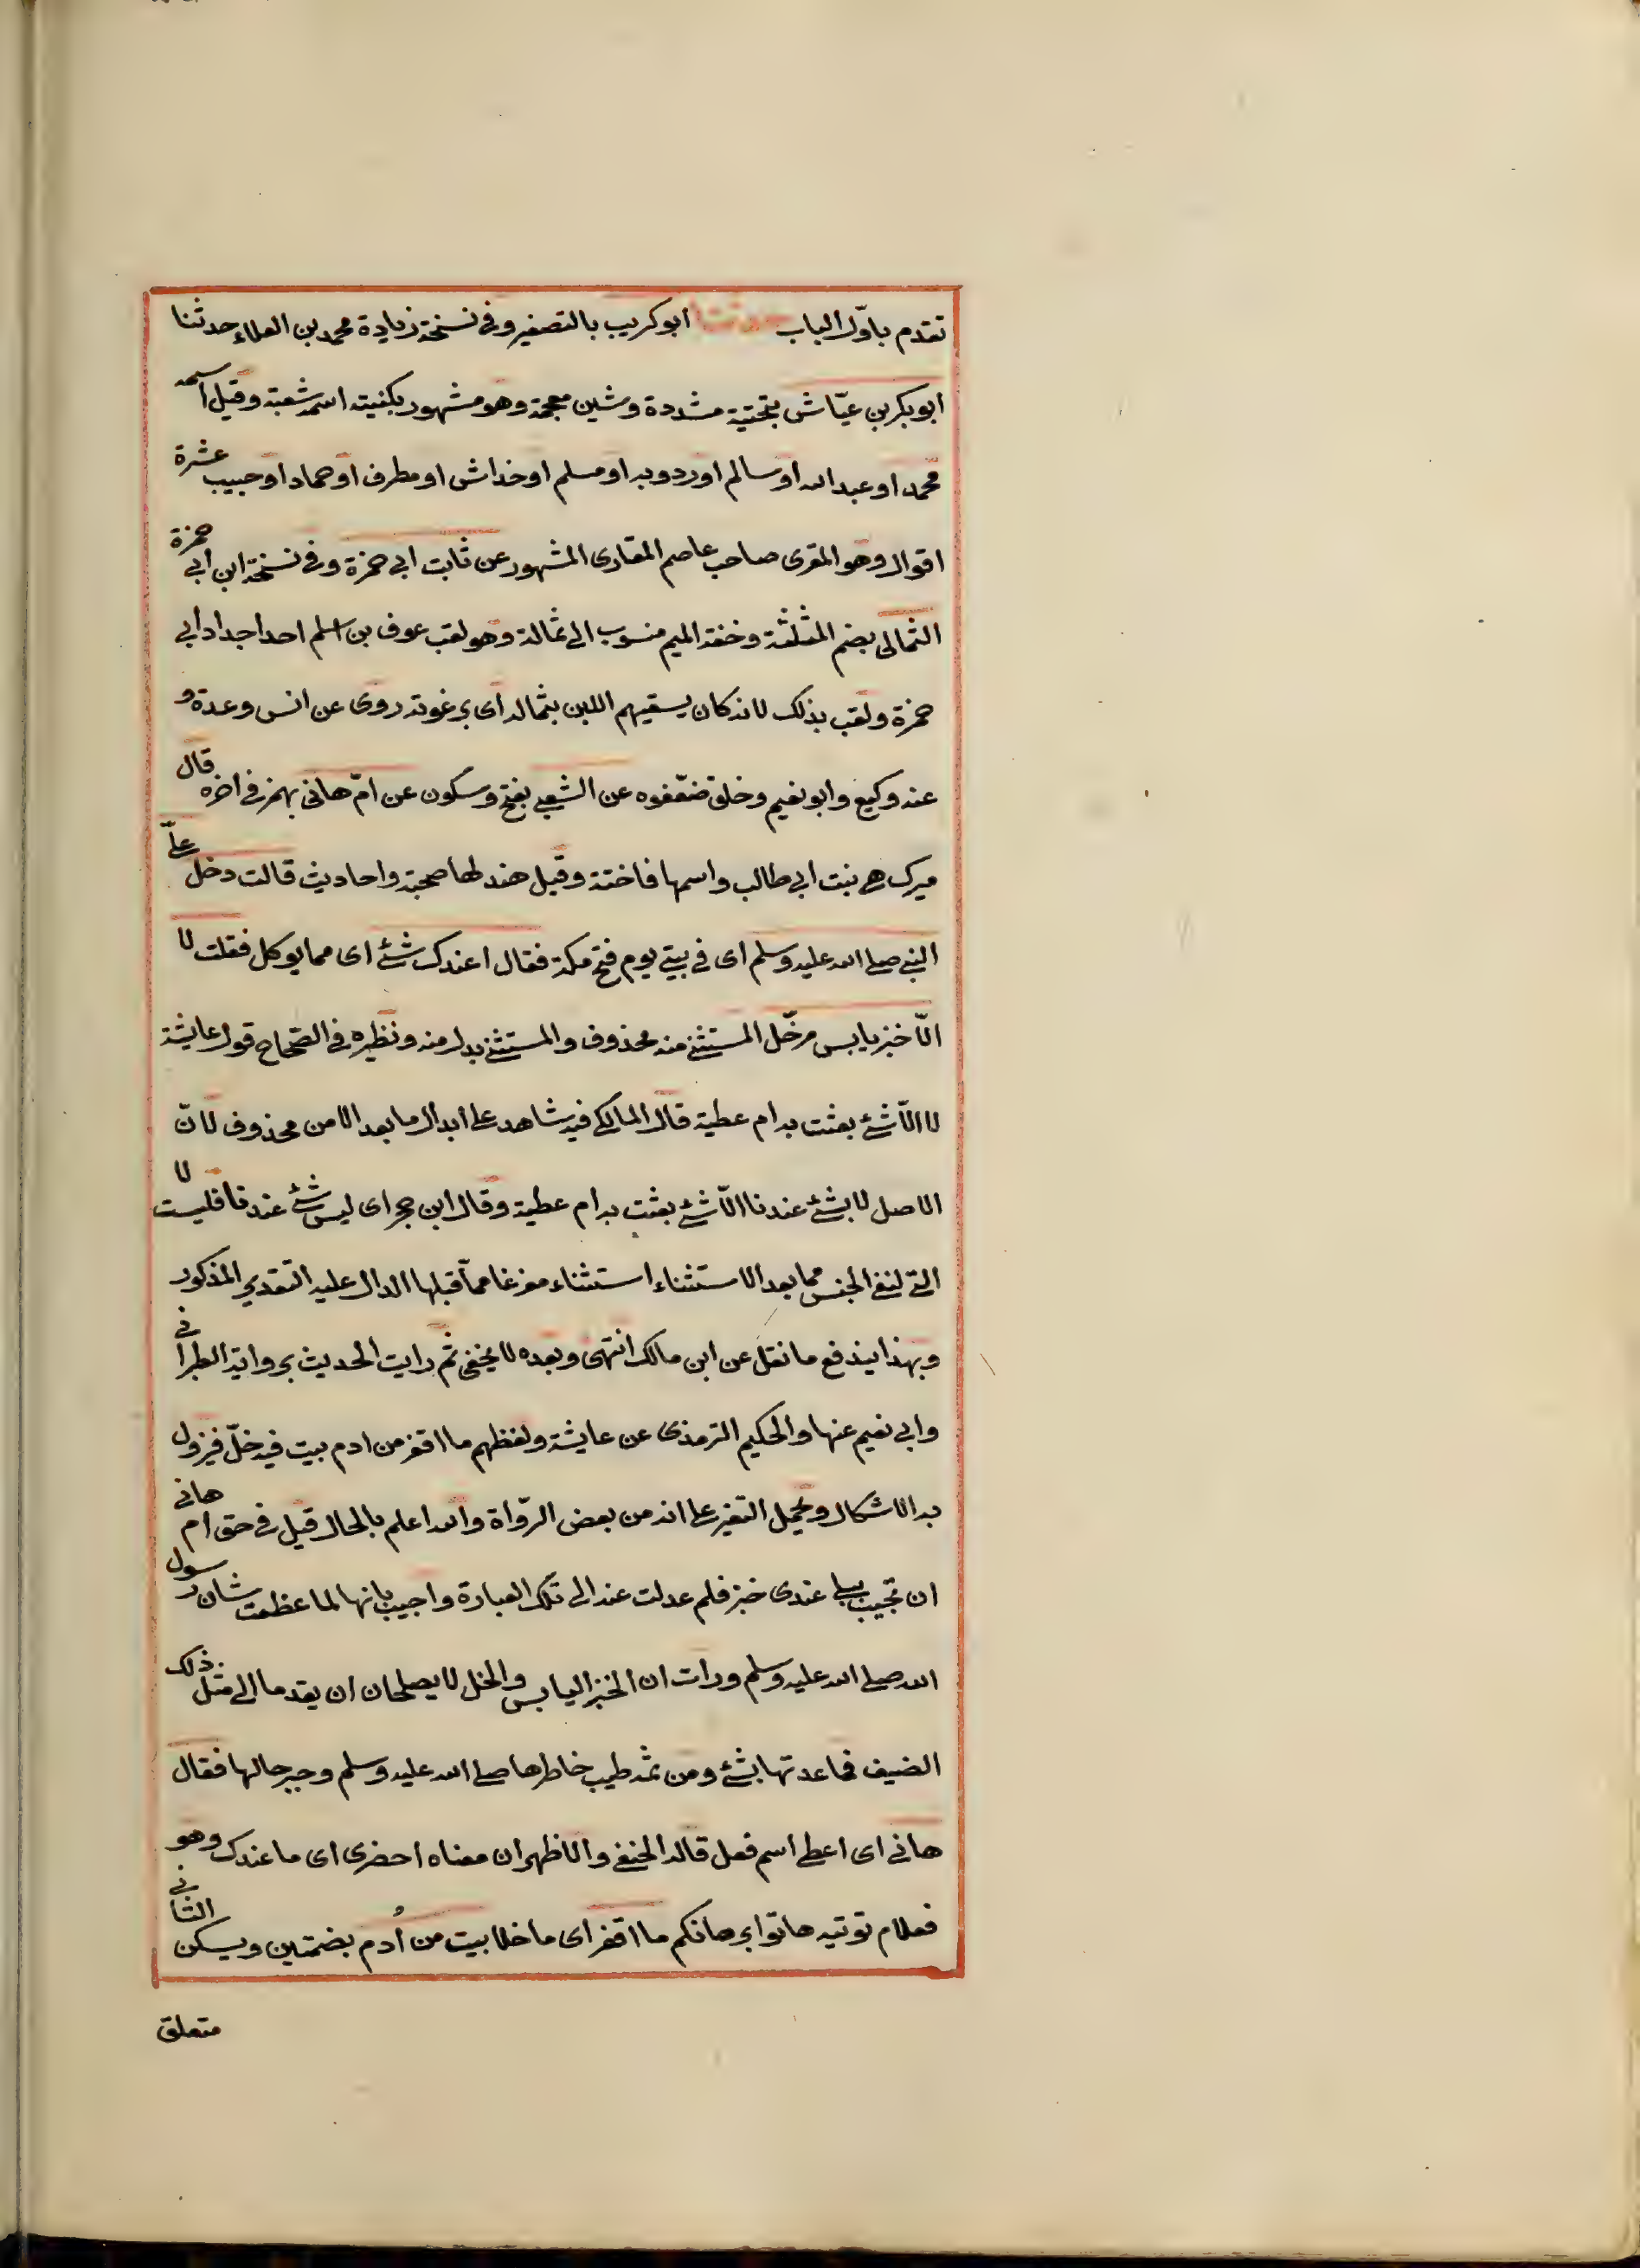 تقدم باوّل الباب حدثنا ابو كريب بالتصغير وفي نسخة زيادة محمد بن العلاء حدثنا
ابو بكر بن عيّاش بتحتية مشددة وشين معجمة وهو مشهور بكنيته اسمه شعبة وقيل اسمه
محمد او عبد الله او سالم او ردوبه او مسلم او خداش او مطرف او حماد او حبيب عشرة
اقوال وهو المقرى صاحب عاصم القارى المشهور عن ثابت ابي حمزة وفي نسخة ابن ابي حمزة
الثمالى بضم المثلثة وخفة الميم منسوب الى ثمالة وهو لقب عوف بن اسلم احد اجداد ابي
حمزة ولقب بذلك لانه كان يسقيهم اللبن بثماله اى برغوته روى عن انس وعدة و
عنه وكيع وابو نعيم وخلق ضعّفوه عن الشعبي بفتح وسكون عن امّ هانى بهمز في اخره قال
ميرك هي بنت ابي طالب واسمها فاختة وقيل هند لها صحبة واحاديث قالت دخل عليّ
النبي صلى الله عليه وسلم اى في بيتي يوم فتح مكة فقال اعندك شئ اى مما يوكل فقلت لا
الّا خبز يابس وخّل المستثنى منه محذوف والمستثنى بدل منه ونظيره في الصّحاح قول عايشة
لا الّا شئ بعثت به ام عطية قال المالكي فيه شاهد على ابدال ما بعد الا من محذوف لانّ
الاصل لا شئ عندنا الّا شئ بعثت به ام عطية وقال ابن حجر اى ليس شئ عندنا فليست لا
التي لنفي الجنس فما بعد الاستثناء استثناء مفرغا ممّا قبلها الدال عليه التقدير المذكور
وبهذا يندفع ما نقل عن ابن مالك انتهى وبعده لا يخفى ثم رايت الحديث برواية الطبراني
وابي نعيم عنها والحكيم الترمذى عن عايشة ولفظهم ما اقفر من ادم بيت فيه خلّ فيزول
به الاشكال ويحمل التغير على انه من بعض الرّواة والله اعلم بالحال قيل في حق ام هاني
ان تجيب ببلى عندى خبز فلم عدلت عنه الى تلك العبارة واجيب بانها لما عظمت شان رسول
الله صلى الله عليه وسلم ورات ان الخبز اليابس والخل لا يصلحان ان يقدما الى مثل ذلك
الضيف فما عدتها بشئ ومن ثمه طيب خاطرها صلى الله عليه وسلم وجبر حالها فقال
هاتي اى اعطى اسم فعل قاله الحنفي والاظهر ان معناه احضرى اى ما عندك وهو
فعلام توتيه هاتوا برهانكم ما اقفر اى ما خلا بيت من أدم بضمتين ويسكن الثاني
متعلق